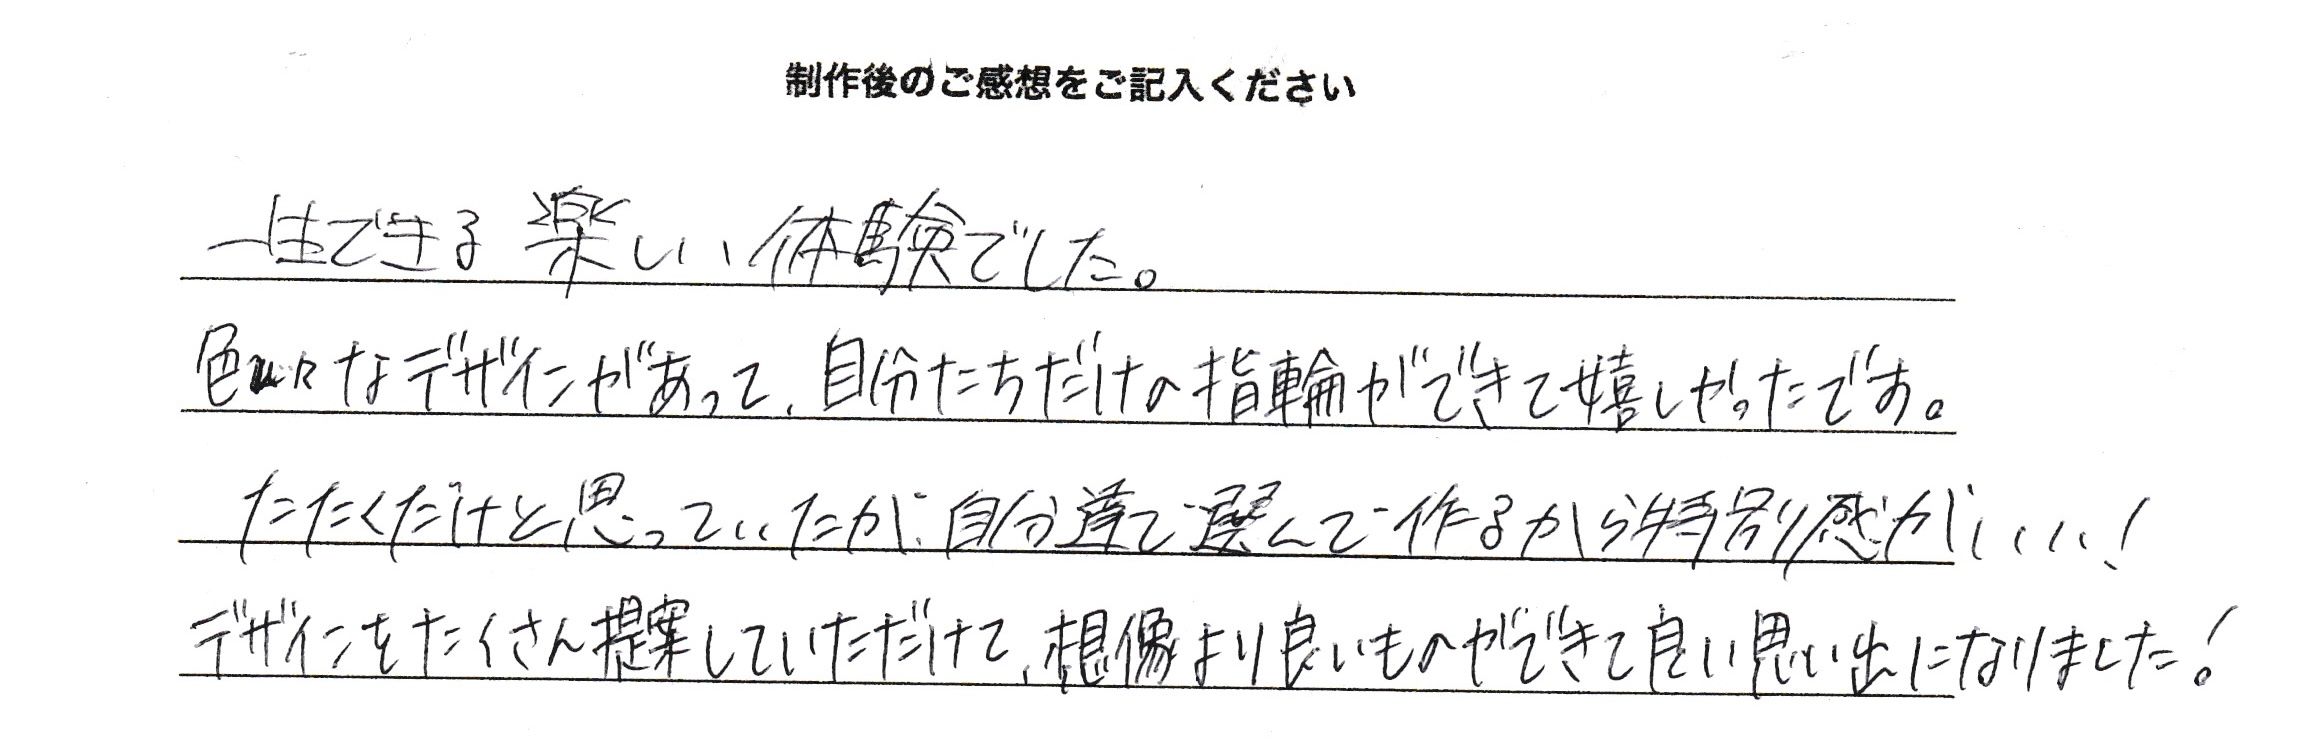 制作後のご感想をご記入ください
一生できる楽しい体験でした。
色々なデザインがあって、自分たちだけの指輪ができて嬉しかったです。
たたくだけと思っていたが、自分達で選んで作るから特別感がいい!
デザインをたくさん提案していただけて、想像より良いものができて良い思い出になりました!